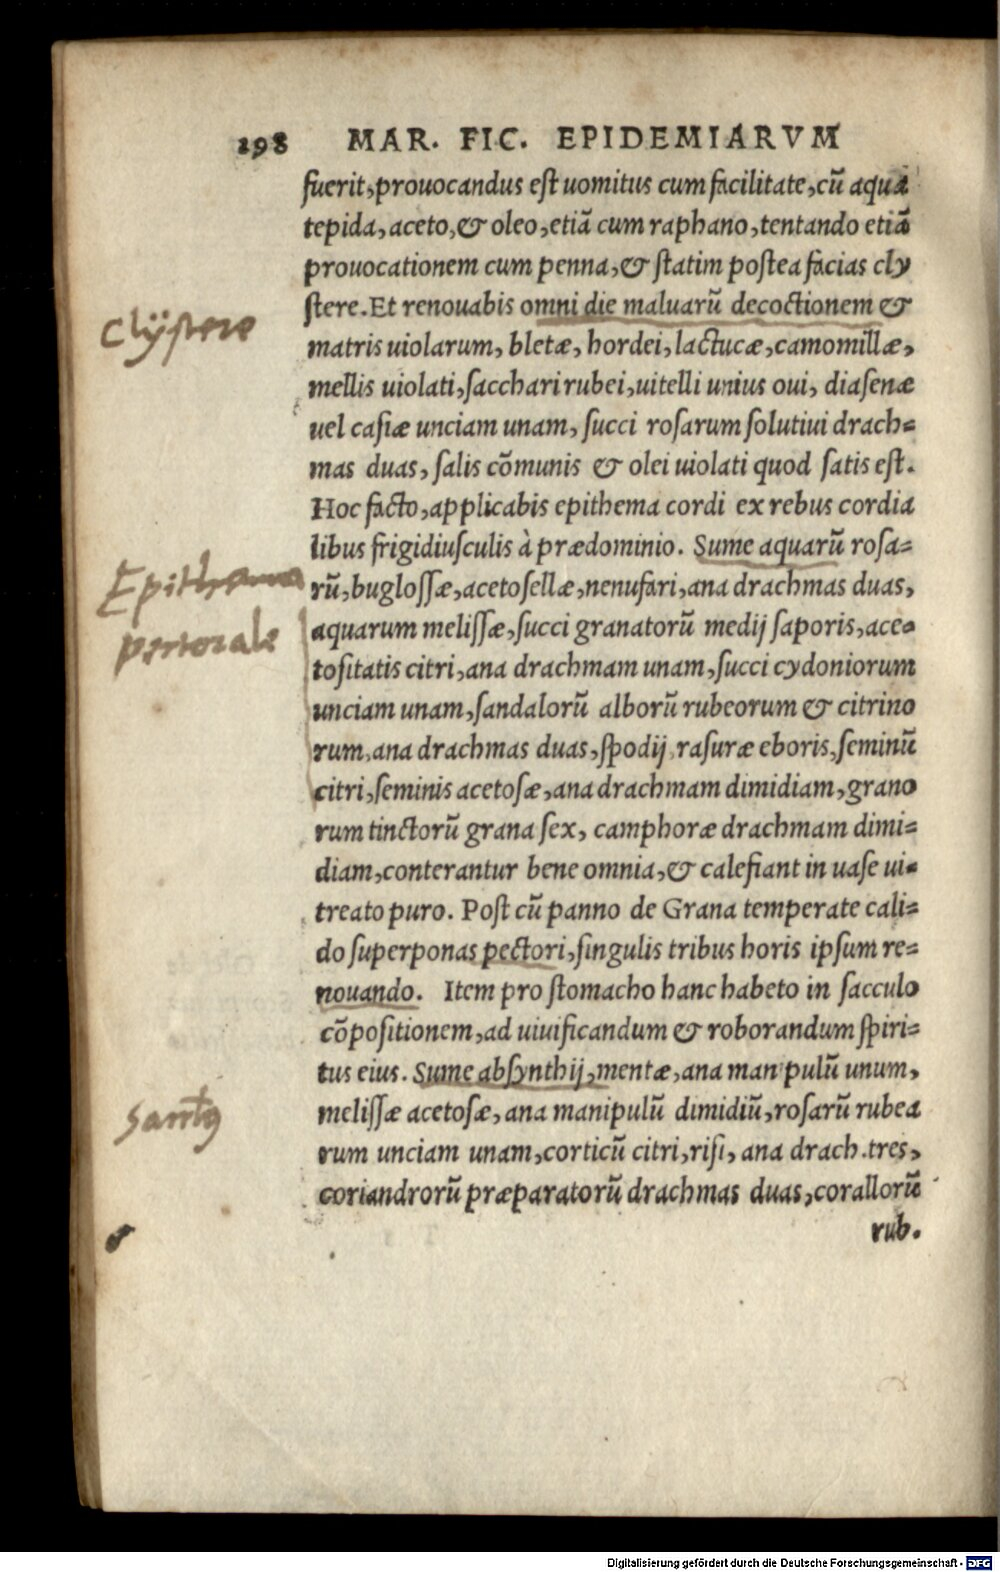 198 MAR. FIC. EPIDEMIARVM
fuerit, prouocandus est uomitus cum facilitate, cū aqua
tepida, aceto, & oleo, etiā cum raphano, tentando etiā
prouocationem cum penna, & statim postea facias cly
stere. Et renouabis omni die maluarū decoctionem &
Clÿstere
matris uiolarum, bletæ, hordei, lactucæ, camomillæ,
mellis uiolati, sacchari rubei, uitelli unius oui, diasenæ
uel casiæ unciam unam, succi rosarum solutiui drach=
mas duas, salis cōmunis & olei uiolati quod satis est.
Hoc facto, applicabis epithema cordi ex rebus cordia
libus frigidiusculis à prædominio. Sume aquarū rosa=
Epithema
rū, buglossæ, acetosellæ, nenufari, ana drachmas duas,
pectorale
aquarum melissæ, succi granatorū medij saporis, ace=
tositatis citri, ana drachmam unam, succi cydoniorum
unciam unam, sandalorū alborū rubeorum & citrino
rum, ana drachmas duas, spodij, rasuræ eboris, seminū
citri, seminis acetosæ, ana drachmam dimidiam, grano
rum tinctorū grana sex, camphoræ drachmam dimi=
diam, conterantur bene omnia, & calefiant in uase ui=
treato puro. Post cū panno de Grana temperate cali=
do superponas pectori, singulis tribus horis ipsum re=
nouando. Item pro stomacho hanc habeto in sacculo
cōpositionem, ad uiuificandum & roborandum spiri=
tus eius. Sume absynthij, mentæ, ana manipulū unum,
melissæ acetosæ, ana manipulū dimidiū, rosarū rubea
rum unciam unam, corticū citri, risi, ana drach. tres,
coriandrorū præparatorū drachmas duas, corallorū
rub.
Digitalisierung gefördert durch die Deutsche Forschungsgemeinschaft - DFG